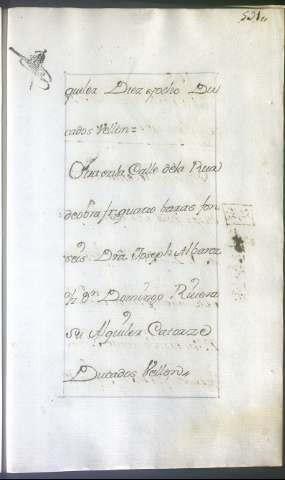 531
quiler Diez y ocho Du
cados Vellon =
Otra en la Calle de la Rua
de obra fr. quatro baras fon
seis Dra. Joseph Albarez
Yz. Dn. Domingo Rivera
su Alquiler Catorze
Ducados Vellon